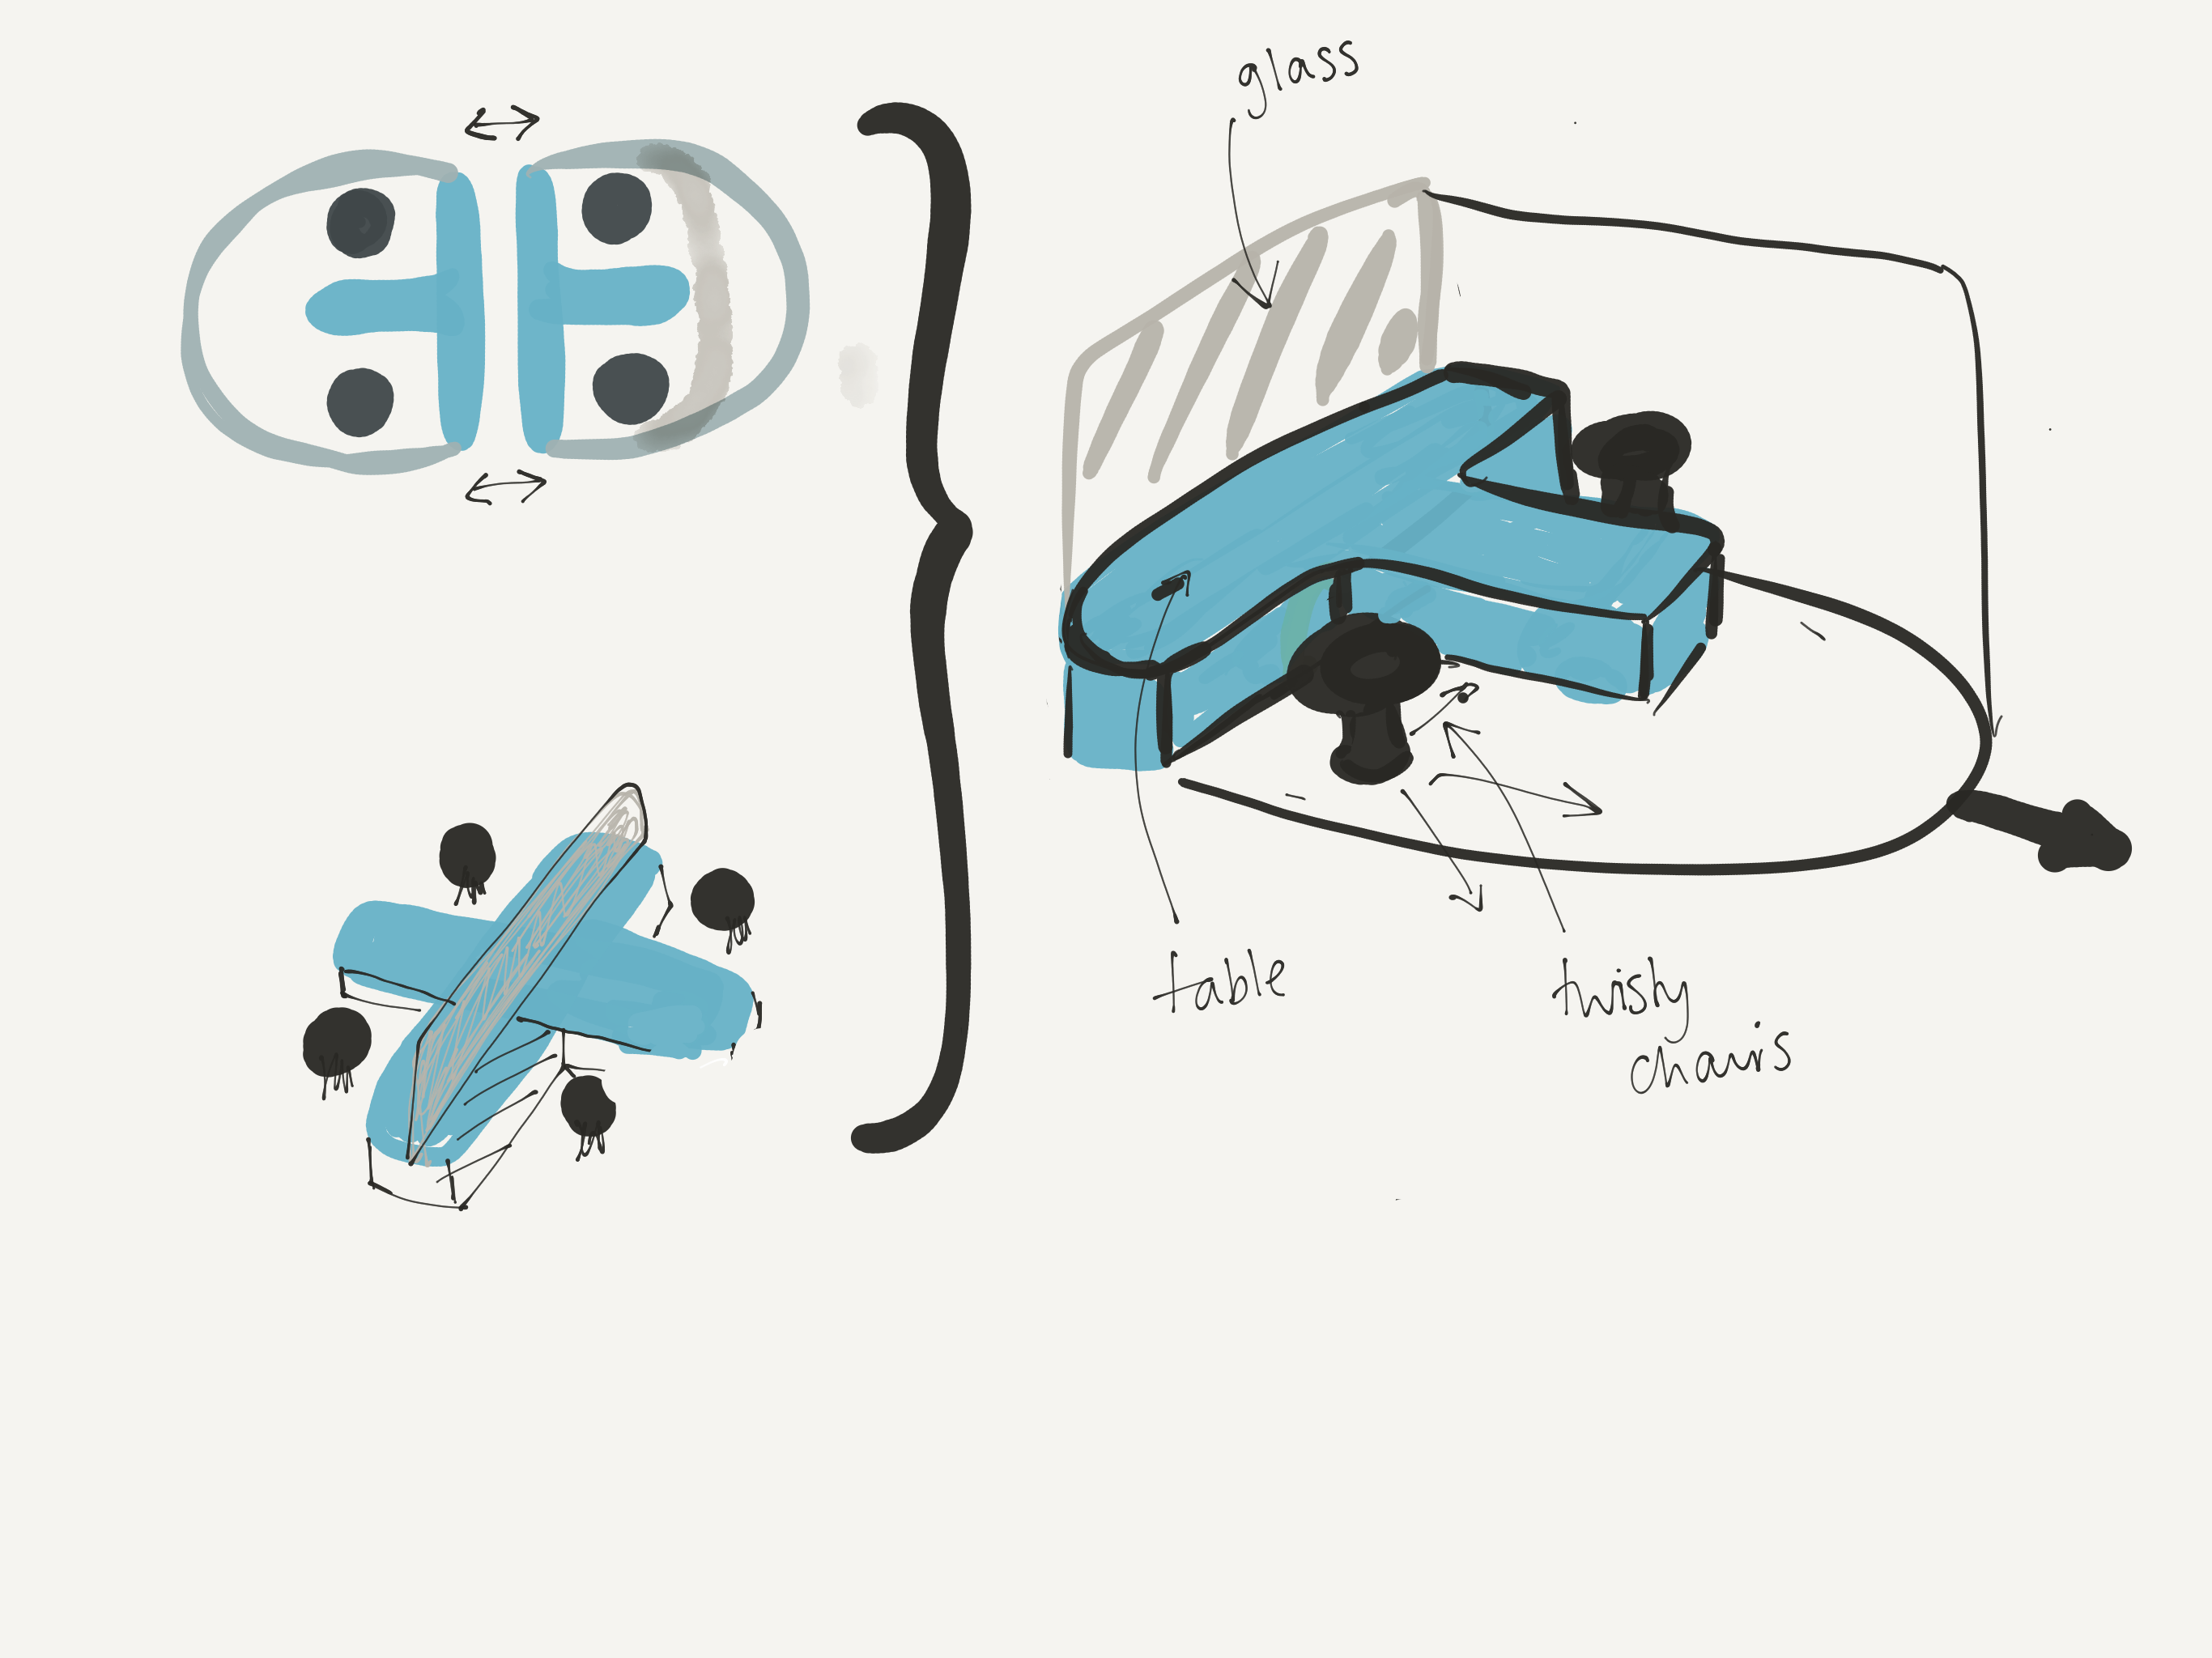 glass
table
twisty
chairs